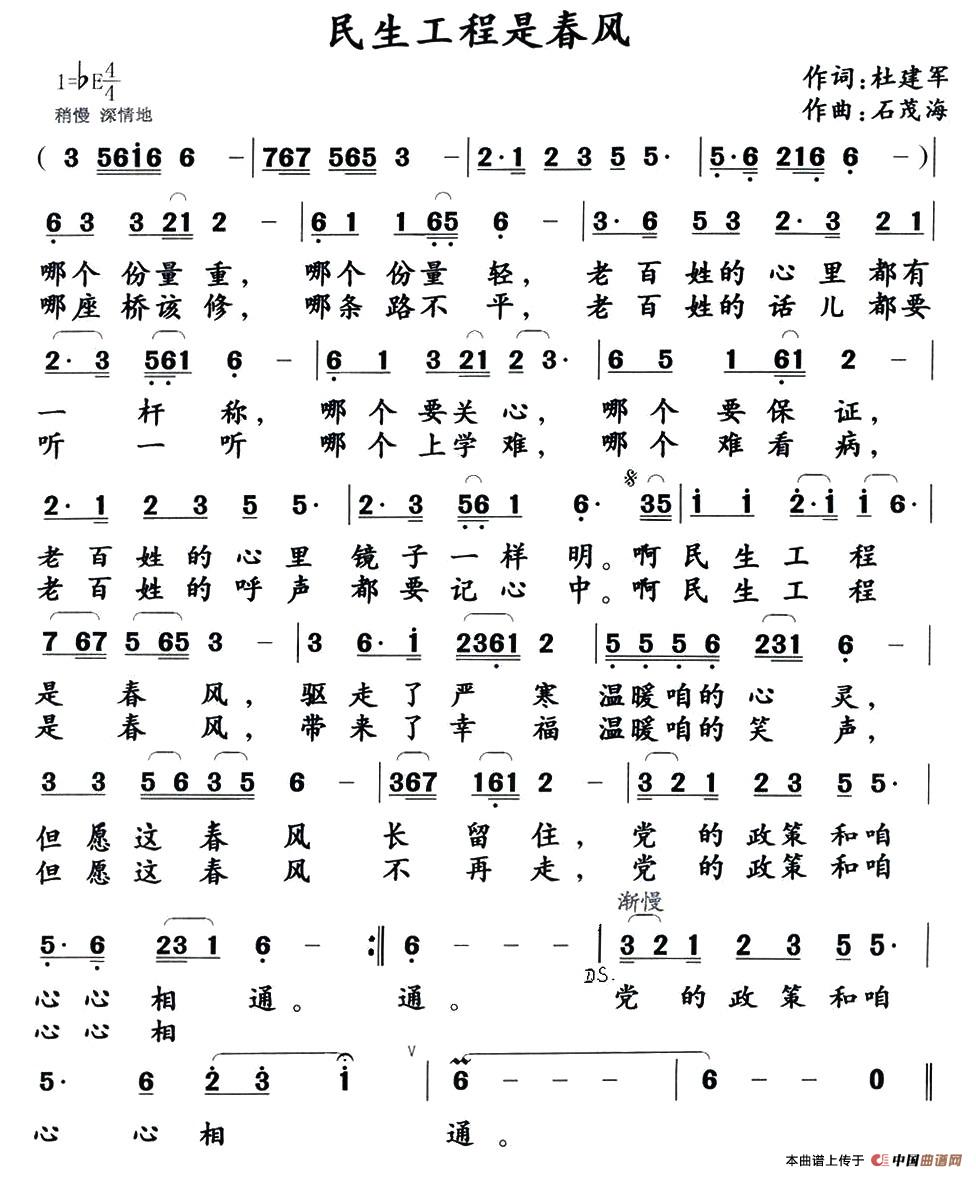 民生工程是春风
1=♭E 4/4
作词:杜建军
稍慢 深情地
作曲:石茂海
( 3 5616 6 - | 767 565 3 - | 2·1 2 3 5 5· | 5·6 216 6 - ) |
6 3 3 21 2 - | 6 1 1 65 6 - | 3· 6 5 3 2· 3 2 1 |
哪个 份量 重, 哪个 份量 轻, 老百姓的心里都有
哪座 桥该 修, 哪条 路不 平, 老百姓的话儿都要
2· 3 561 6 - | 6 1 3 21 2 3· | 6 5 1 61 2 - |
一 杆 称, 哪个要关心, 哪个要保证,
听 一 听 哪个上学难, 哪个难看病,
2· 1 2 3 5 5· | 2· 3 56 1 6· 35 | i i 2·i i 6· |
老百姓的心里 镜子一样明。啊民生工程
老百姓的呼声 都要记心中。啊民生工程
7 67 5 65 3 - | 3 6· i 2361 2 | 5 5 5 6 231 6 - |
是 春 风, 驱走了严寒 温暖咱的心灵,
是 春 风, 带来了幸福 温暖咱的笑声,
3 3 5 6 3 5 6 - | 367 161 2 - | 3 2 1 2 3 5 5· |
但愿这春风 长留住, 党的政策和咱
但愿这春风 不再走, 党的政策和咱
渐慢
5· 6 23 1 6 - :‖ 6 - - - | 3 2 1 2 3 5 5· |
D.S.
心心相 通。 通。 党的政策和咱
心心相
5· 6 2 3 i ∨ | 6 - - - | 6 - - 0 ‖
心 心相 通。
本曲谱上传于 中国曲谱网